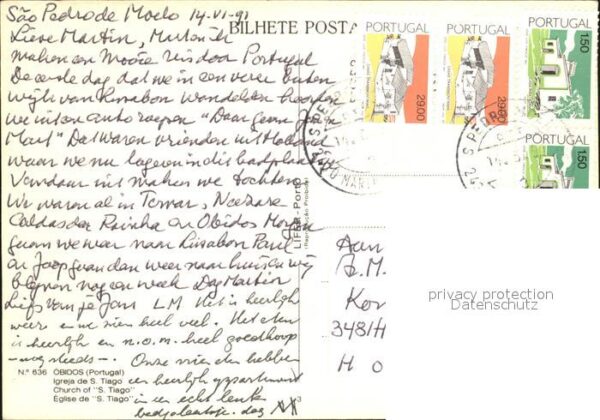 São Pedro de Moelo 14-VI-91
BILHETE POSTA
Lieve Martin, Mutsen ik
maken een mooie reis door Portugal
De eerste dag dat we in een verre buiten
wijk van Lissabon wandelden hoorden
we uit een auto roepen "Daar gaan Jan en
Mart" Dat waren vrienden uit Holland
waar we nu logeren in dit badplaatsje
Vandaar uit maken we tochten
We waren al in Tomar, Nazare
Caldas da Rainha en Obidos Morgen
gaan we weer naar Lissabon Paul
en Joop gaan dan weer naar huis en wij
blijven nog een week Dag Martin
Liefs van je Jans L M Het is heerlijk
weer en we zien heel veel. Het eten
is heerlijk en n.o.m. heel goedkoop
- nog steeds - . Onze vrienden hebben
een heerlijk appartement
in een echt leuke
badplaatsje. dag
Nº 636 ÓBIDOS (Portugal)
Igreja de S. Tiago
Church of "S. Tiago"
Église de "S. Tiago"
LIFER - Porto
(Reprodução Proibida)
PORTUGAL
29.00
PORTUGAL
29.00
PORTUGAL
1.50
PORTUGAL
1.50
Aan
B.M.
Kor
3481H
H O
privacy protection
Datenschutz